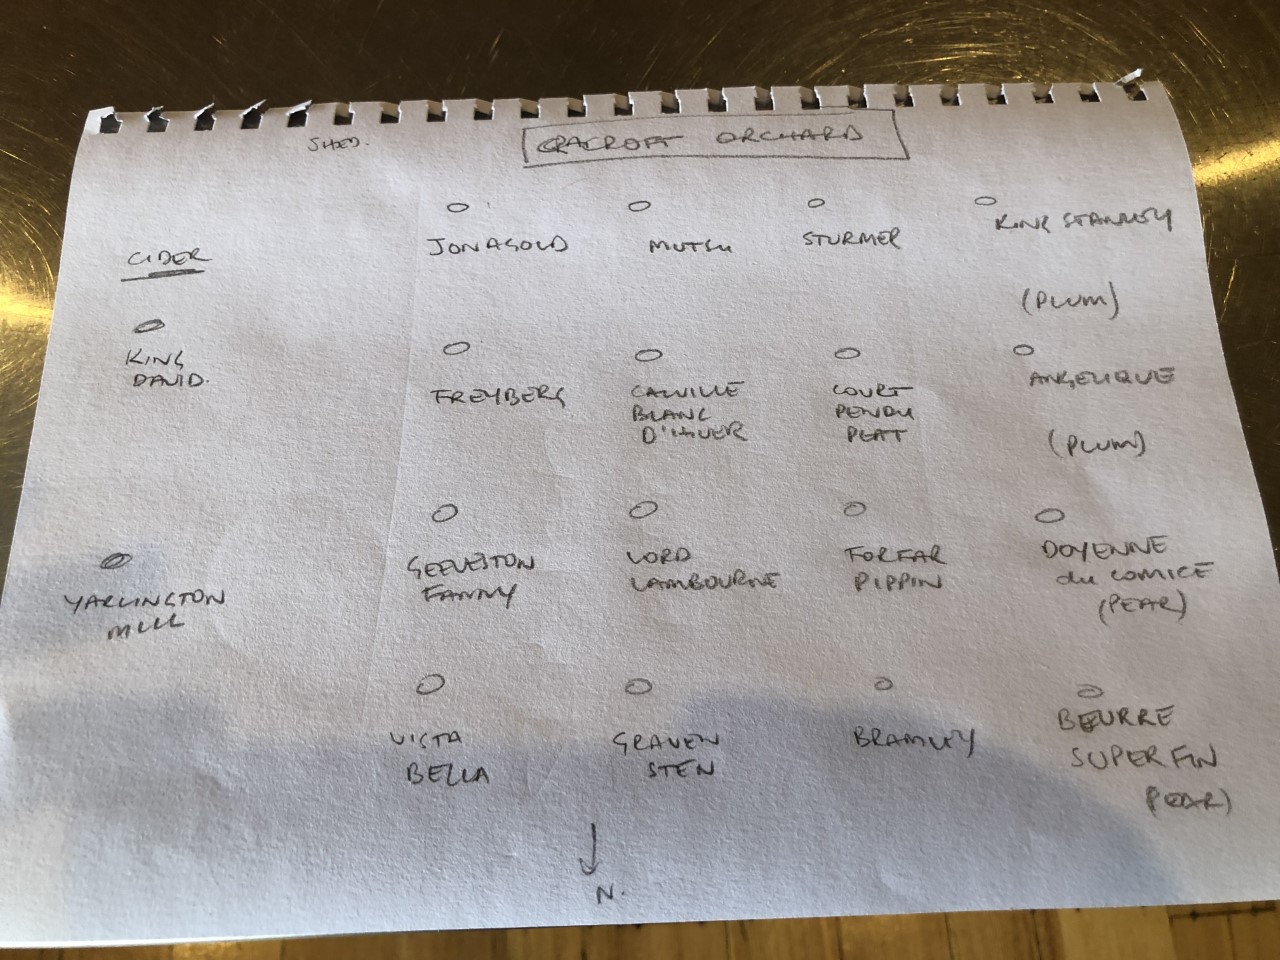 SHED.
CRACROFT ORCHARD
CIDER
JONAGOLD
MUTSU
STURMER
KING STANLEY
(PLUM)
KING
DAVID.
FREYBERG
CALVILLE
BLANC
D'HIVER
COURT
PENDU
PLAT
ANGELIQUE
(PLUM)
YARLINGTON
MILL
GEEVESTON
FANNY
LORD
LAMBOURNE
FORFAR
PIPPIN
DOYENNE
du COMICE
(PEAR)
VISTA
BELLA
GRAVEN
STEN
BRAMLEY
BEURRE
SUPERFIN
PEAR)
N.